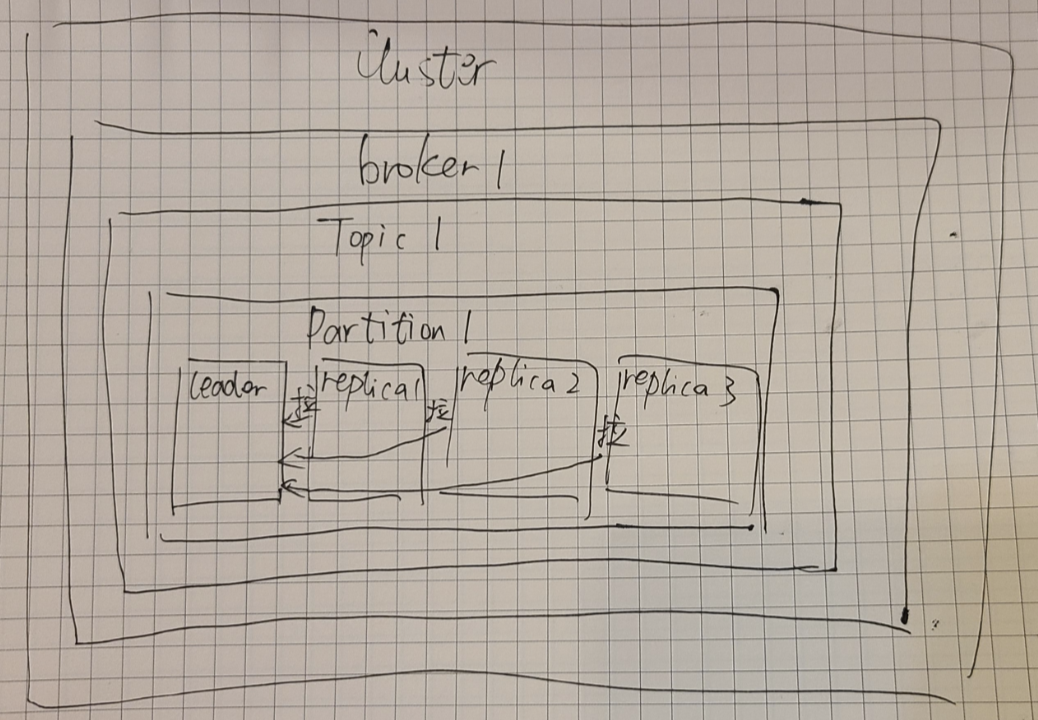 Cluster
broker 1
Topic 1
Partition 1
leader 拉 replica1 拉 replica 2 拉 replica 3